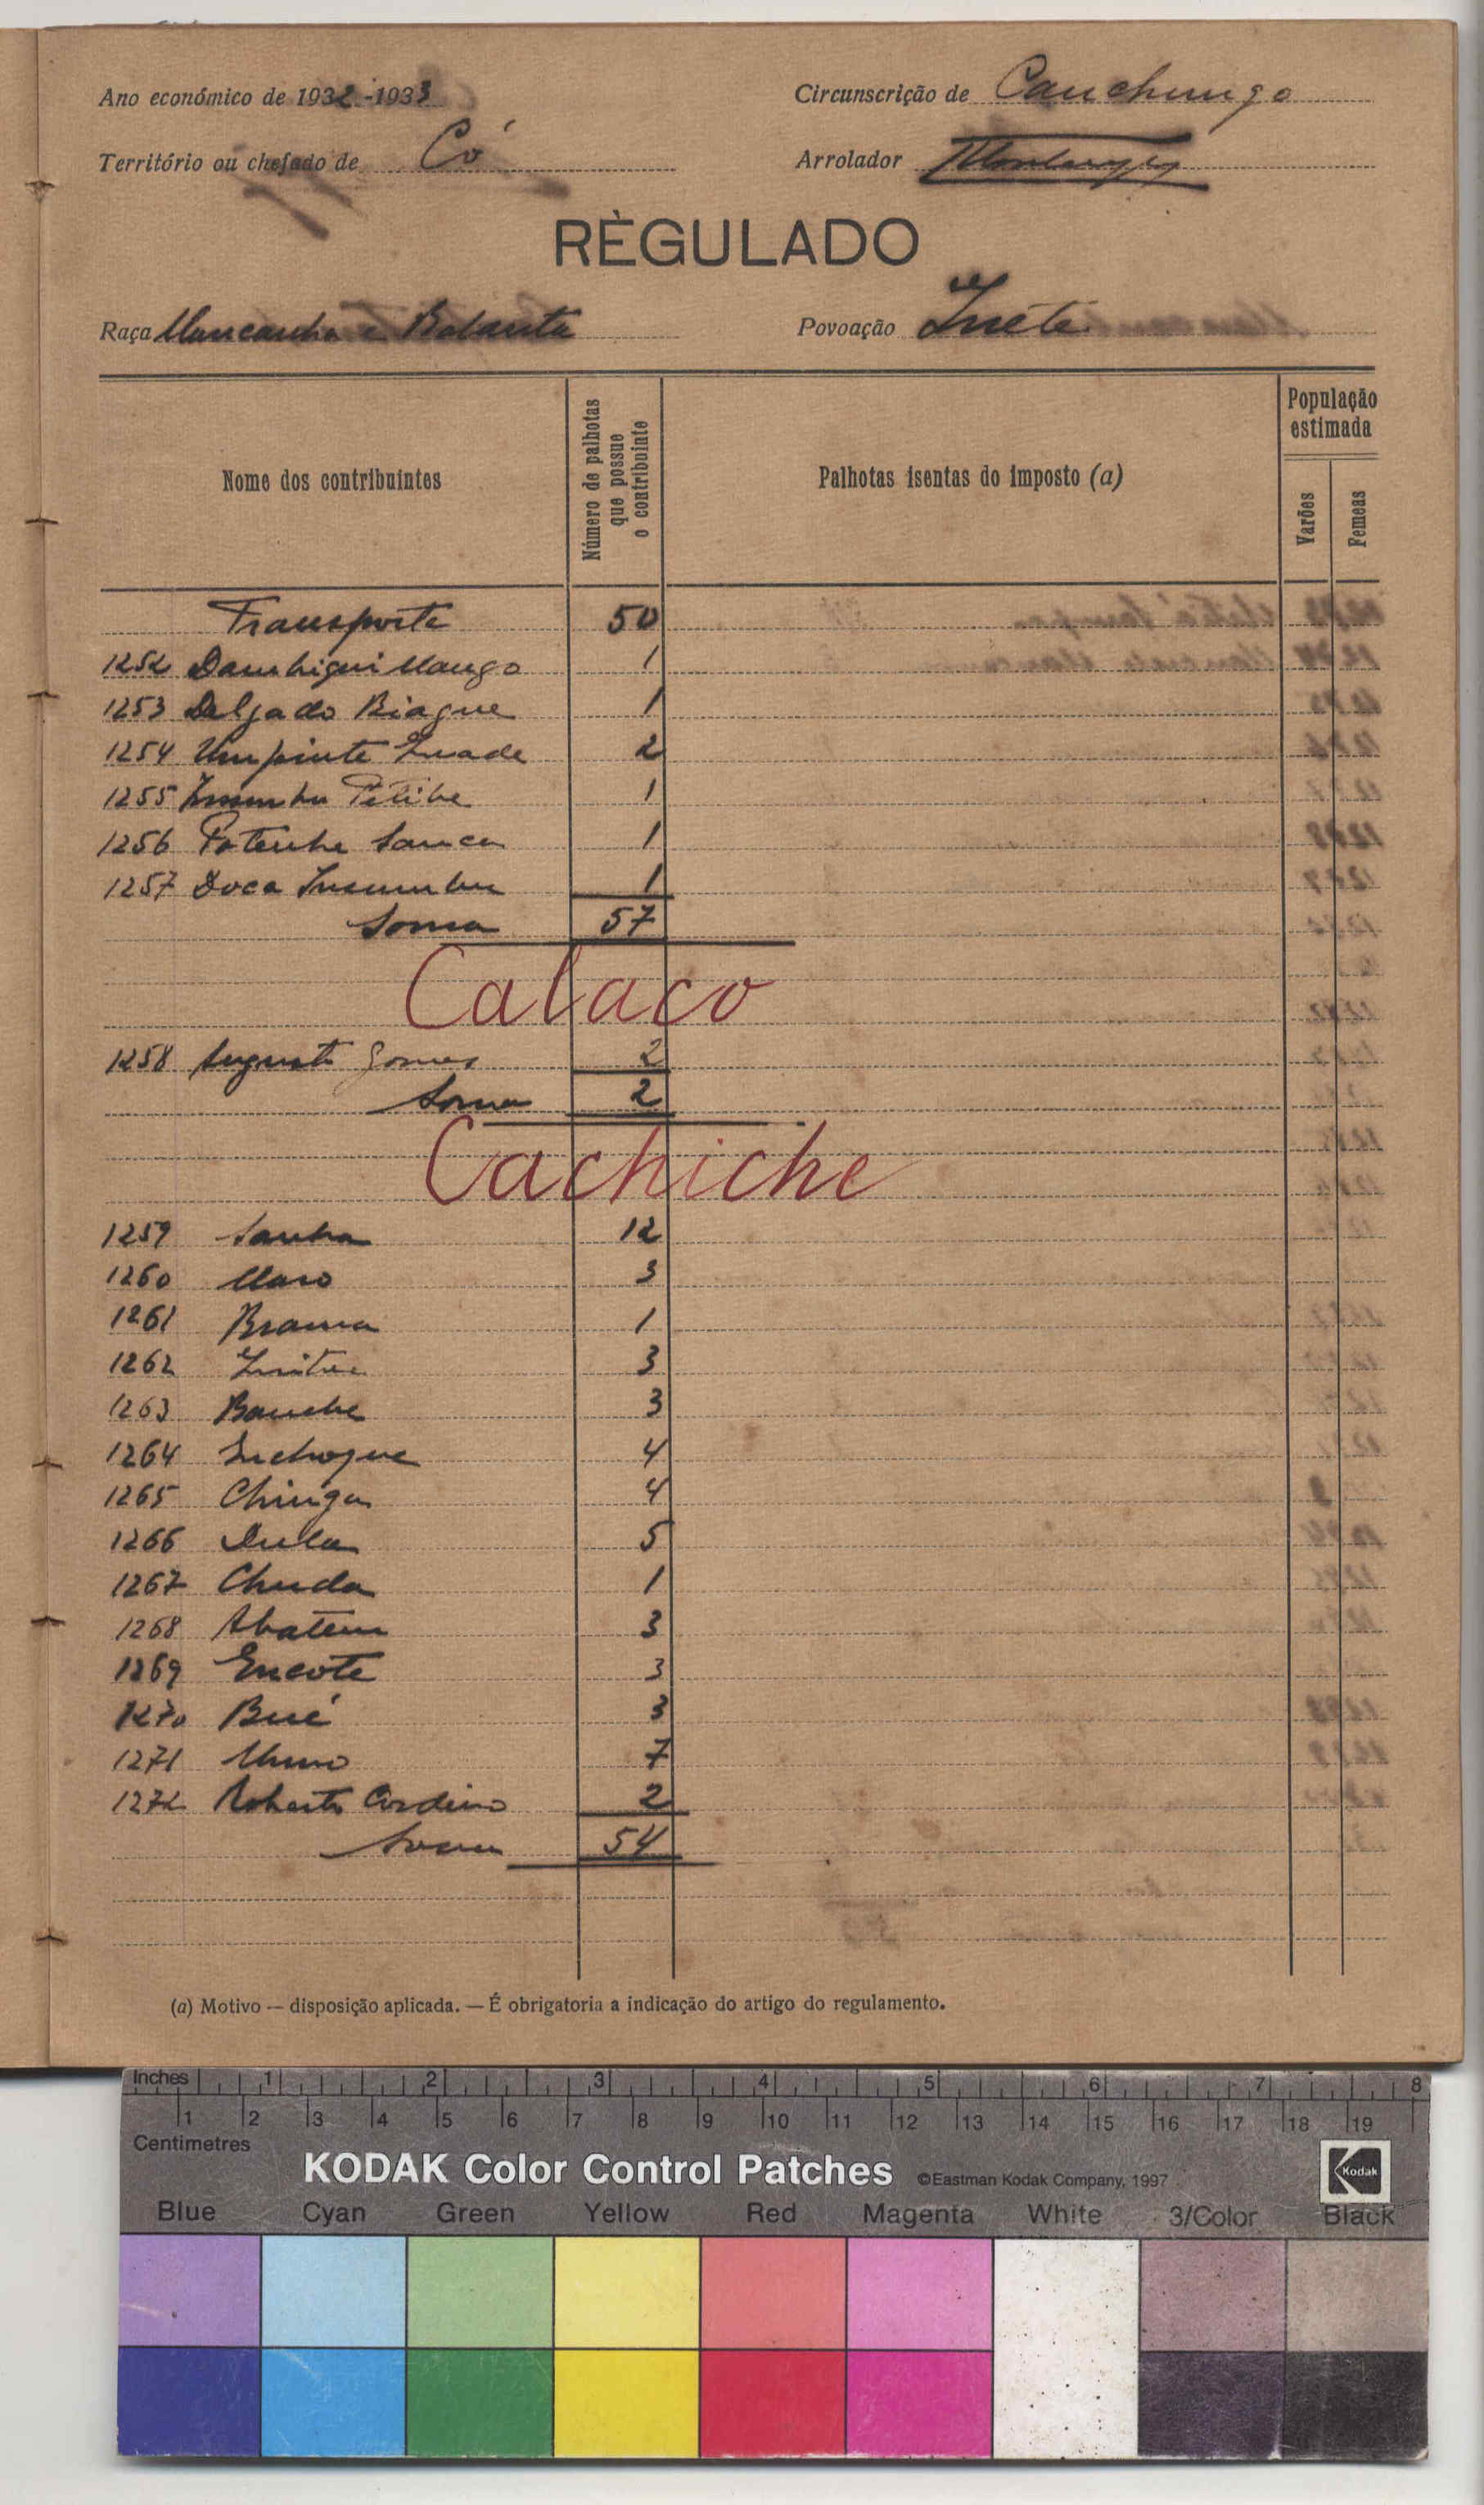 Ano económico de 1932-1933 Circunscrição de Canchungo
Território ou chefado de Có Arrolador
RÈGULADO
Raça Mancanha e Balanta Povoação Inéte
Nome dos contribuintes
Número de palhotas que possue o contribuinte
Palhotas isentas do imposto (a)
População estimada
Varões
Femeas
Transporte 50
1252 Dambiqui Mango 1
1253 Delgado Biague 1
1254 Umpinte Inade 2
1255 1
1256 Sanca 1
1257 Doca Insumbu 1
Soma 57
Calaco
1258 Augusto Gomes 2
Soma 2
Cachiche
1259 Sanha 12
1260 3
1261 Brama 1
1262 3
1263 Banche 3
1264 Inchoque 4
1265 Chinga 4
1266 Dula 5
1267 Chuda 1
1268 Abatem 3
1269 Encote 3
1270 Bué 3
1271 7
1272 Roberto Cordino 2
Soma 54
(a) Motivo — disposição aplicada. — É obrigatoria a indicação do artigo do regulamento.
Inches 1 2 3 4 5 6 7 8
1 2 3 4 5 6 7 8 9 10 11 12 13 14 15 16 17 18 19
Centimetres
KODAK Color Control Patches ©Eastman Kodak Company, 1997 Kodak
Blue Cyan Green Yellow Red Magenta White 3/Color Black